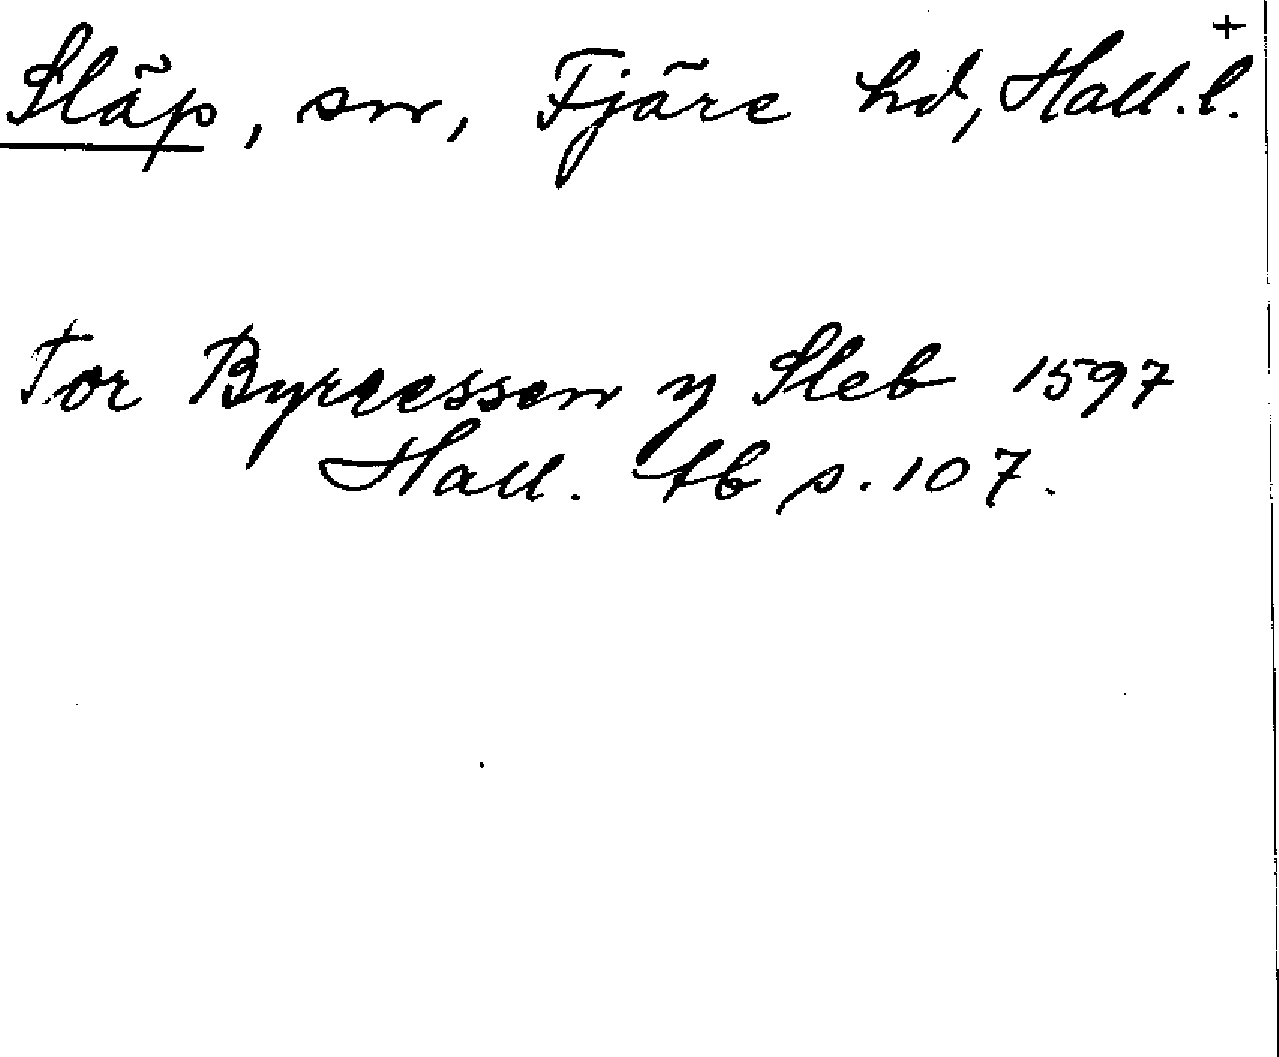 +
Släp, sn, Fjäre hd, Hall.l.
Tor Byrgessen y Sleb 1597
Hall. tb s. 107.